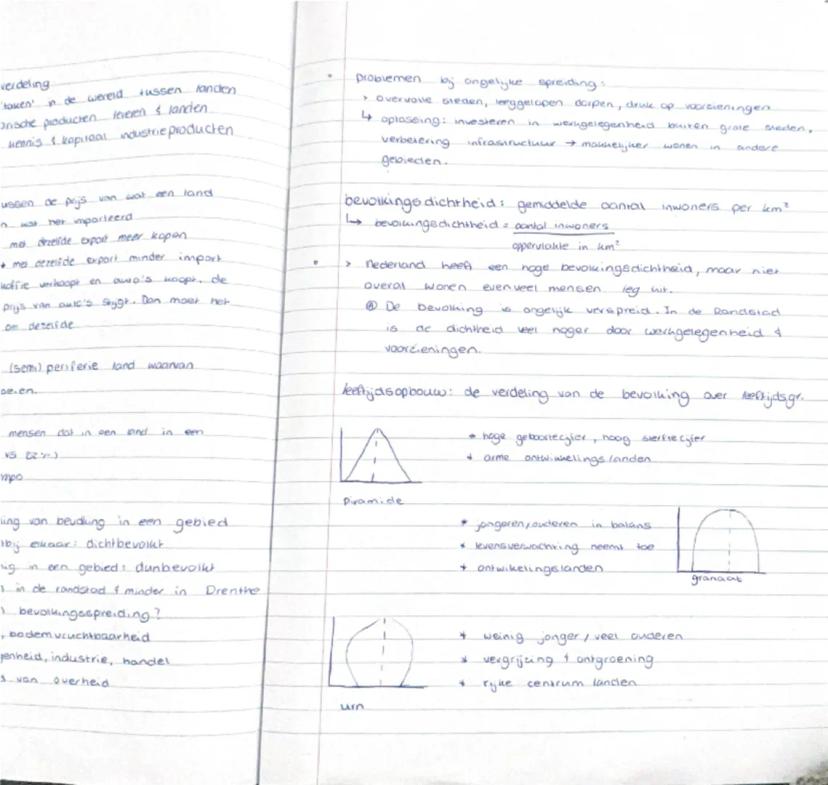 verdeling
'taken' in de wereld tussen landen
ische producten leveren & landen
kennis & kapitaal industrieproducten
ussen de prijs van wat een land
n wat het importeerd
met dezelfde export meer kopen
met dezelfde export minder import
koffie verkoopt en auto's koopt, de
prijs van auto's stijgt. Dan moet het
om dezelfde
(semi) periferie land waarvan
mensen dat in een land in een
vs
mpo
ling van bevolking in een gebied
tbij elkaar: dichtbevolkt
ig in een gebied: dunbevolkt
in de randstad & minder in Drenthe
bevolkingsspreiding?
, bodemvruchtbaarheid
genheid, industrie, handel
s van overheid
• problemen bij ongelijke spreiding:
> overvolle steden, leeggelopen dorpen, druk op voorzieningen
↳ oplossing: investeren in werkgelegenheid buiten grote steden,
verbetering infrastructuur → makkelijker wonen in andere
gebieden.
bevolkingsdichtheid: gemiddelde aantal inwoners per km²
↳ bevolkingsdichtheid = aantal inwoners
oppervlakte in km²
• > Nederland heeft een hoge bevolkingsdichtheid, maar niet
overal wonen evenveel mensen leg uit.
Ⓐ De bevolking is ongelijk verspreid. In de Randstad
is de dichtheid veel hoger door werkgelegenheid &
voorzieningen.
leeftijdsopbouw: de verdeling van de bevolking over leeftijdsgr.
* hoge geboortecijfer, hoog sterftecijfer
* arme ontwikkelingslanden
Piramide
* jongeren/ouderen in balans
* levensverwachting neemt toe
* ontwikelingslanden
granaat
* weinig jonger / veel ouderen
* vergrijzing & ontgroening
* rijke centrum landen
urn